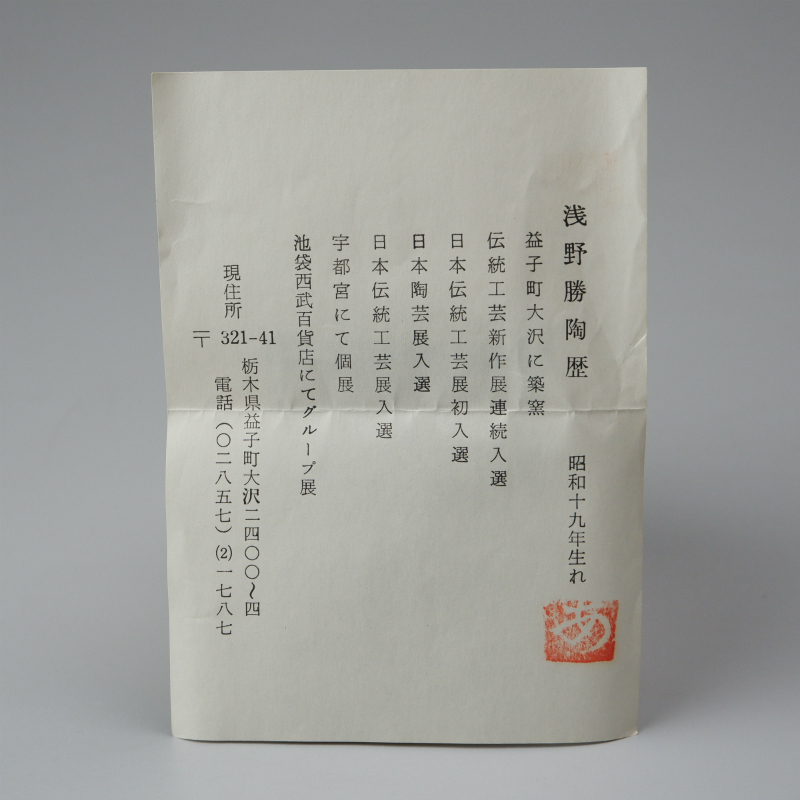 浅野勝陶歴　昭和十九年生れ
益子町大沢に築窯
伝統工芸新作展連続入選
日本伝統工芸展初入選
日本陶芸展入選
日本伝統工芸展入選
宇都宮にて個展
池袋西武百貨店にてグループ展
現住所
〒321-41
栃木県益子町大沢二四〇〇〜四
電話（〇二八五七）(2)一七八七
あ